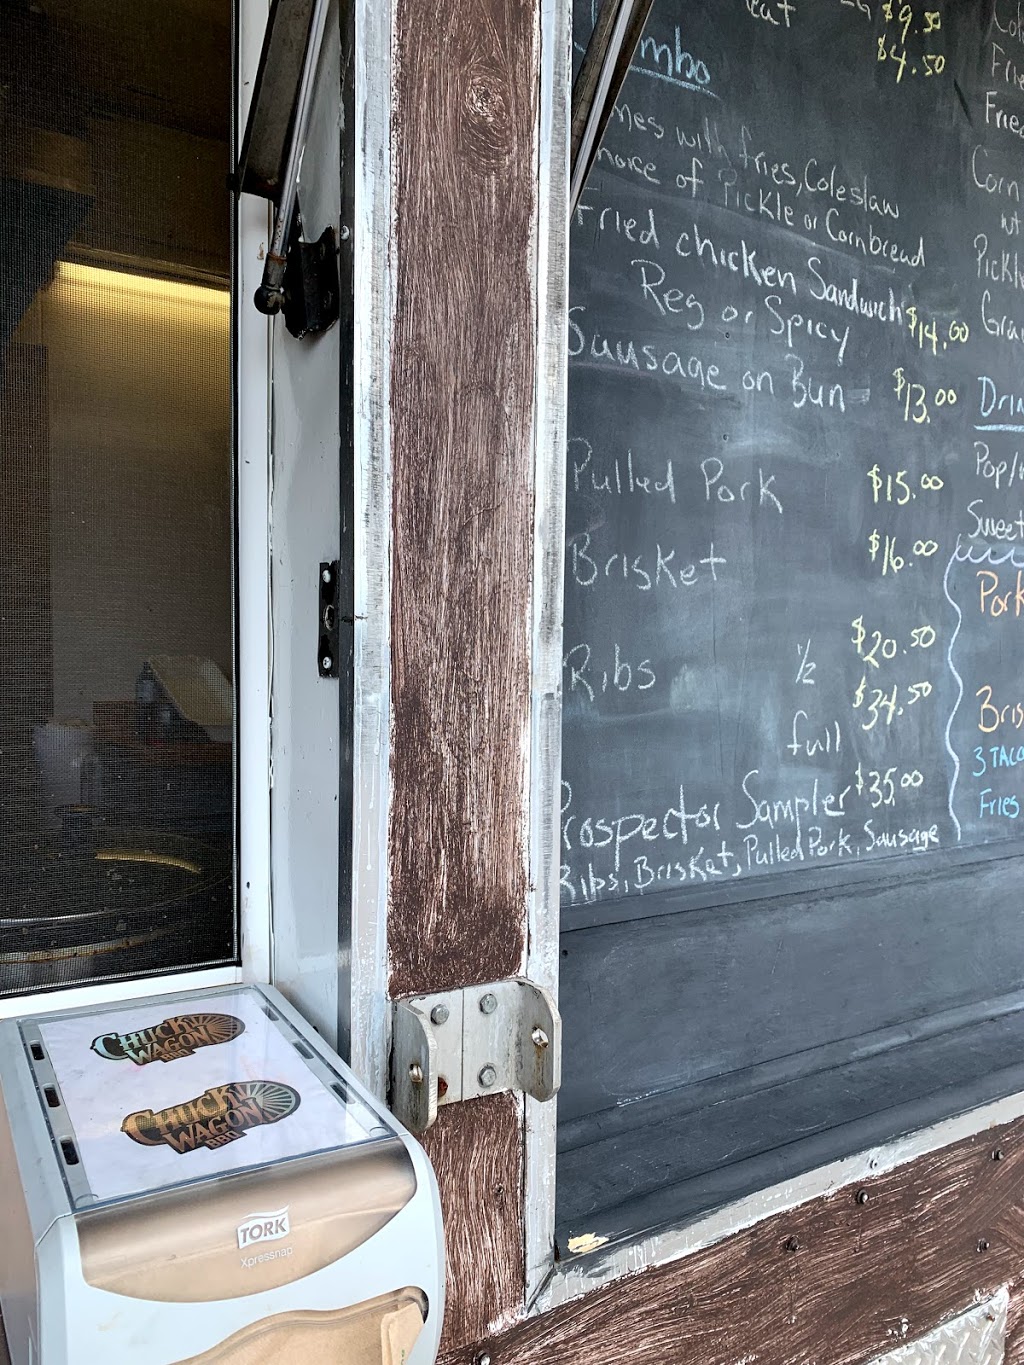 $9.50
$4.50
with fries, Coleslaw
of Pickle or Cornbread
Fried chicken Sandwich $14.00
Reg or Spicy
Sausage on Bun $13.00
Pulled Pork $15.00
Brisket $16.00
Ribs 1/2 $20.50
full $34.50
Prospector Sampler $35.00
Ribs, Brisket, Pulled Pork, Sausage
Corn
Pop/
Sweet
Pork
3 TACO
Fries
CHUCK
WAGON
BBQ
CHUCK
WAGON
BBQ
TORK
Xpressnap